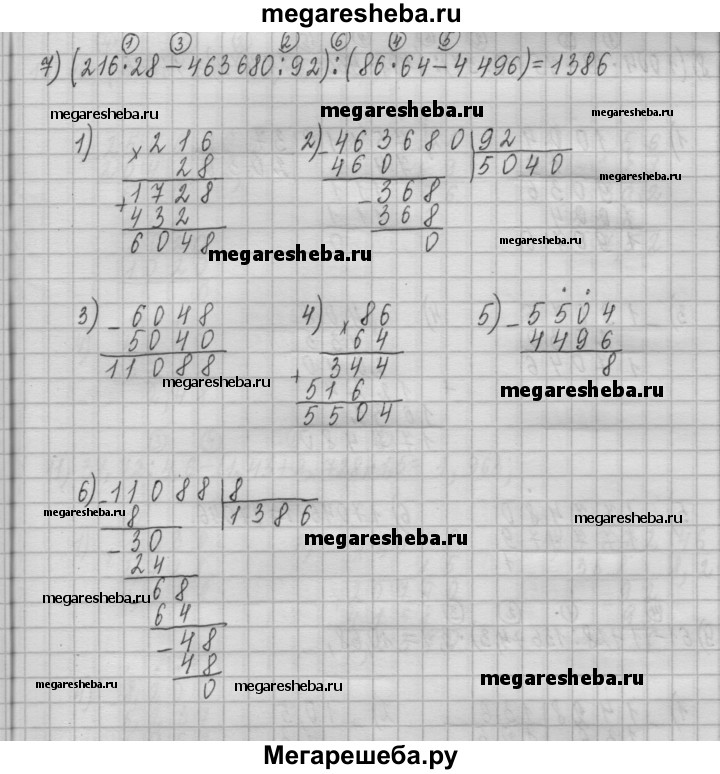 megaresheba.ru
1 3 2 6 4 5
7) (216·28−463680:92):(86·64−4 496)=1386
megaresheba.ru megaresheba.ru megaresheba.ru
1) × 216
28
+ 1728
432
6048
megaresheba.ru
2) − 463680 | 92
460 | 5040
− 368
368
0
megaresheba.ru
megaresheba.ru
3) − 6048
5040
11088
megaresheba.ru
4) × 86
64
+ 344
516
5504
5) − 5504
4496
8
megaresheba.ru
6) − 11088 | 8
8 | 1386
− 30
24
68
64
− 48
48
0
megaresheba.ru
megaresheba.ru
megaresheba.ru
megaresheba.ru
megaresheba.ru
megaresheba.ru
megaresheba.ru
Мегарешеба.ру